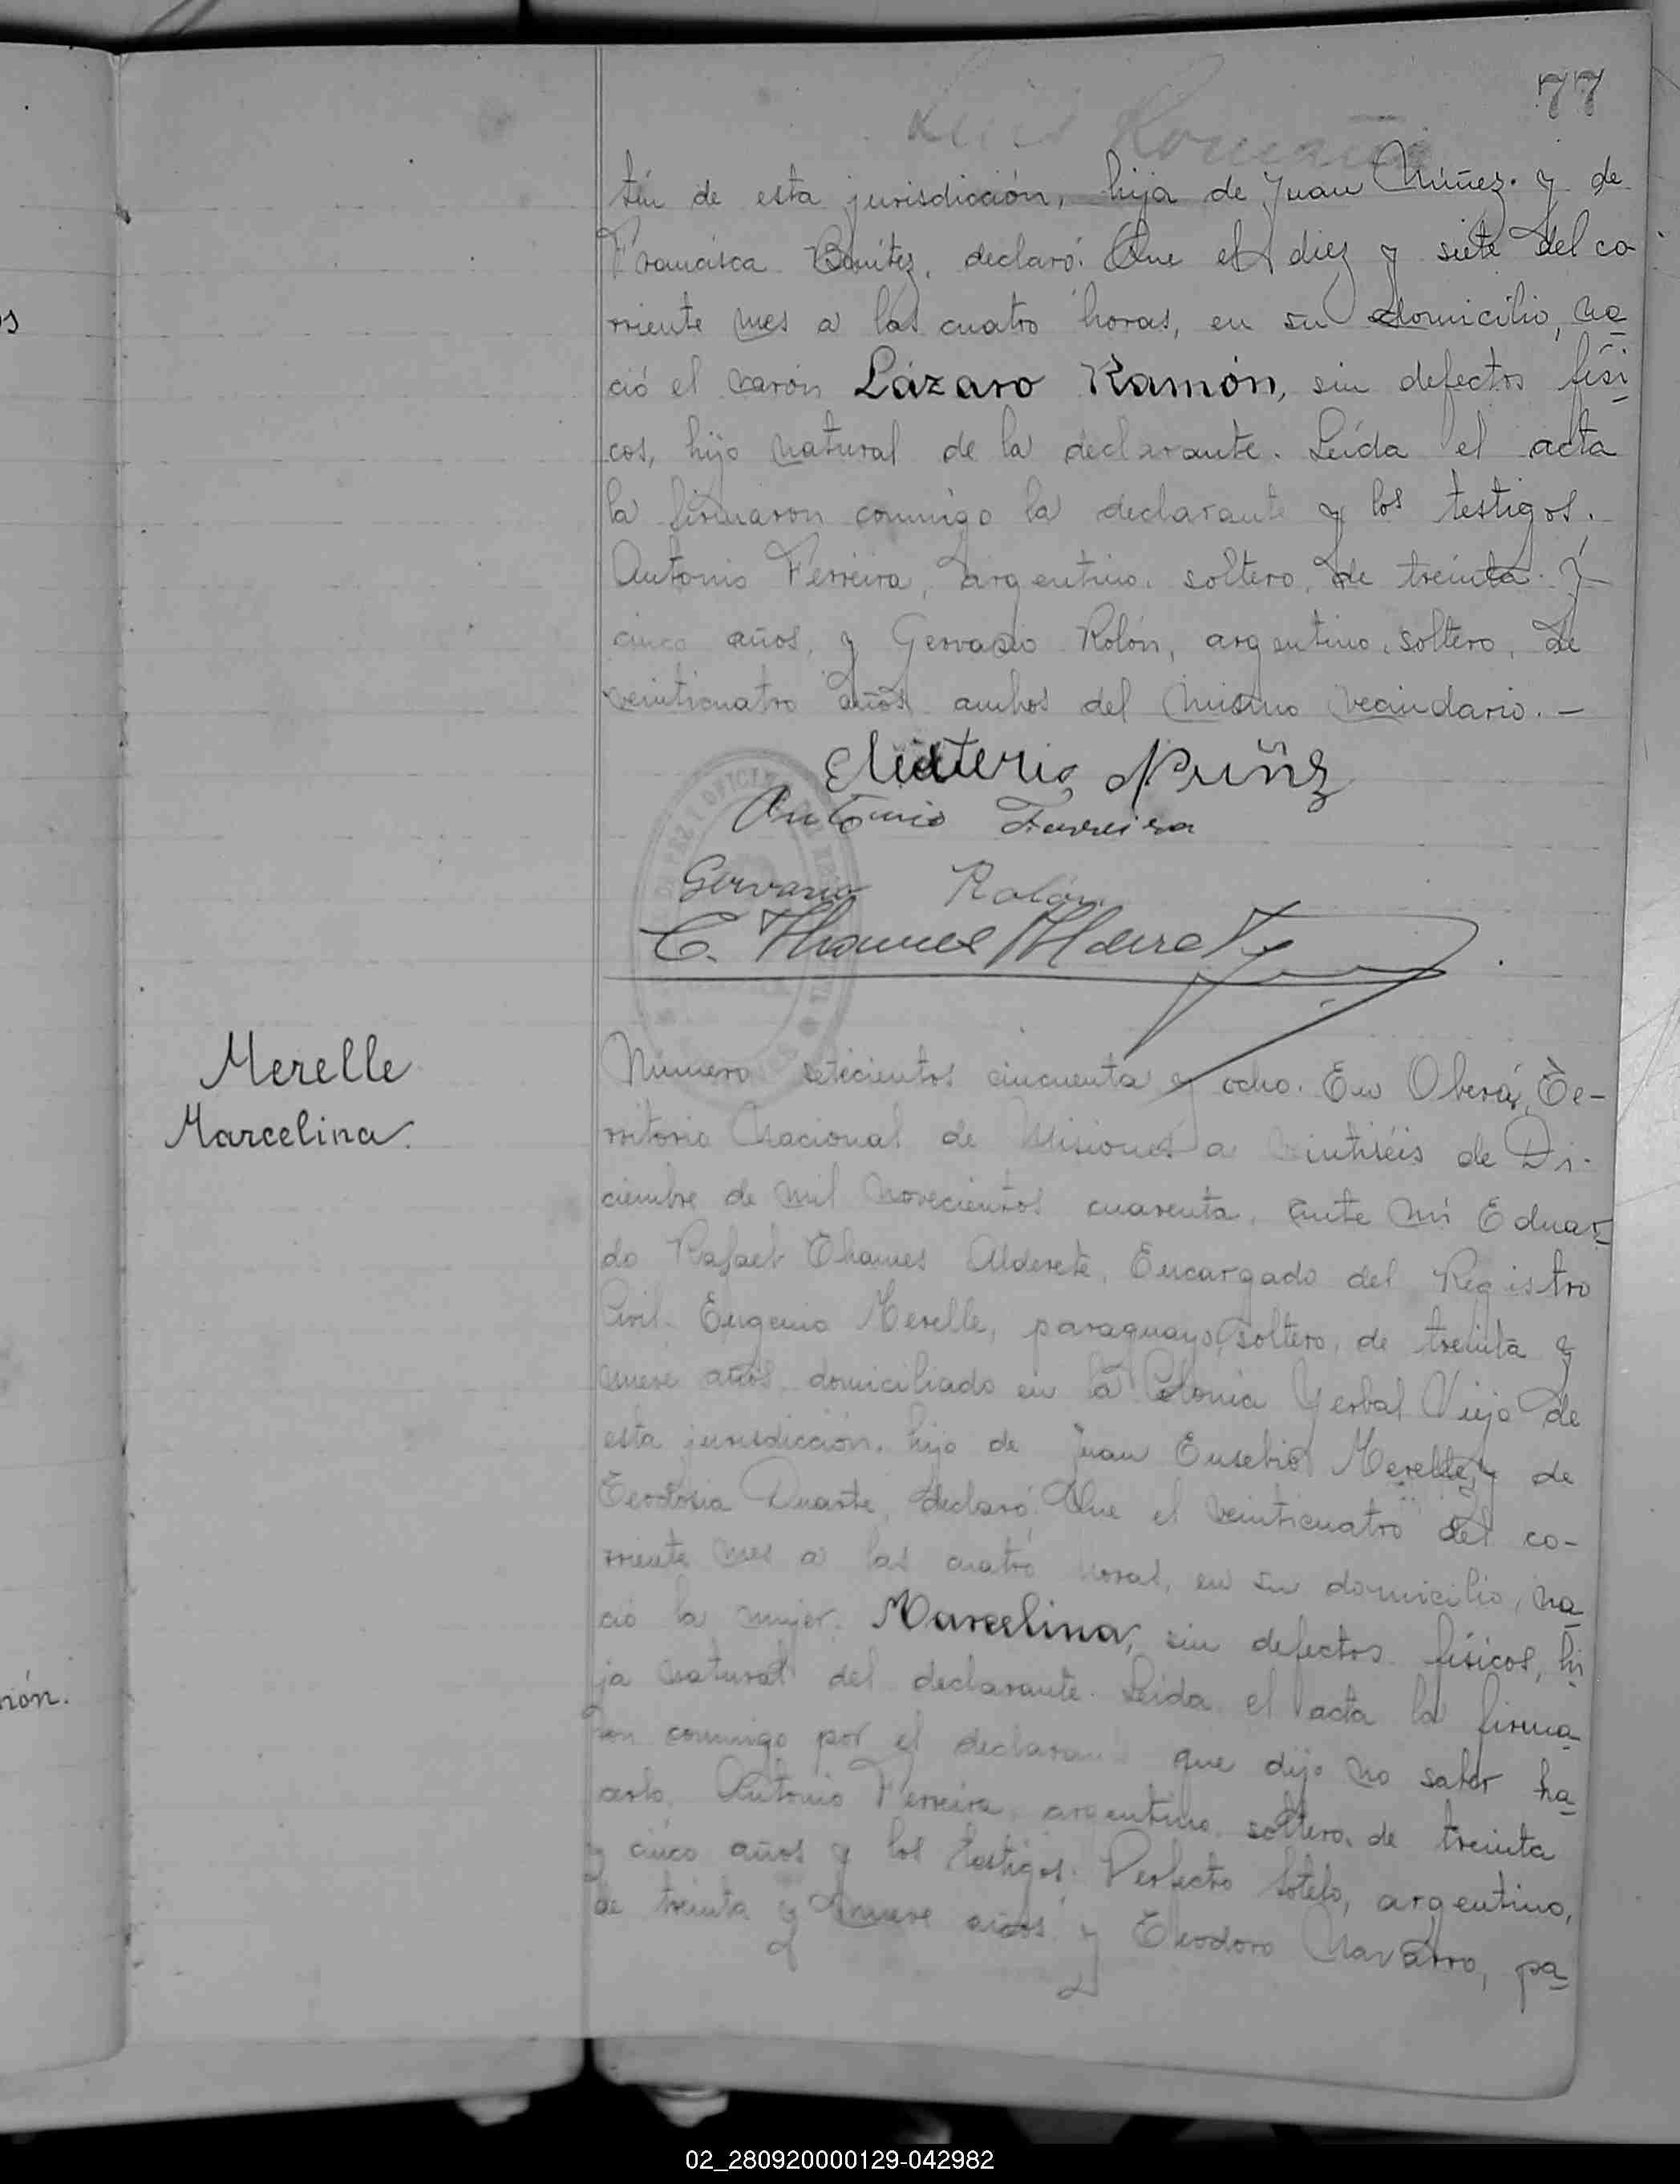 77
tín de esta jurisdicción, hija de Juan Núñez y de
Francisca Benítez, declaró: Que el diez y siete del co
rriente mes a las cuatro horas, en su domicilio, na
ció el varón Lázaro Ramón, sin defectos físi
cos, hijo natural de la declarante. Leída el acta
la firmaron conmigo la declarante y los testigos.
Antonio Ferreira, argentino, soltero, de treinta y
cinco años, y Gervasio Rolón, argentino, soltero, de
veinticuatro años ambos del mismo vecindario. —
Eleuteria Núñz
Antonio Ferreira
Gervasio Rolón
E. Thames Alderete
Merelle
Marcelina.
Número setecientos cincuenta y ocho. En Oberá, Te-
rritorio Nacional de Misiones a veintiséis de Di-
ciembre de mil novecientos cuarenta, ante mí Eduar
do Rafael Thames Alderete, Encargado del Registro
Civil. Eugenio Merelle, paraguayo, soltero, de treinta y
nueve años, domiciliado en la Colonia Yerbal Viejo de
esta jurisdicción, hijo de Juan Eusebio Merelle y de
Teodosia Duarte, declaró: Que el veinticuatro del co-
rriente mes a las cuatro horas, en su domicilio, na
ció la mujer Marcelina, sin defectos físicos, hi
ja natural del declarante. Leída el acta la firma
ron conmigo por el declarante que dijo no saber ha
cerlo, Antonio Ferreira, argentino, soltero, de treinta
y cinco años y los testigos: Perfecto Sotelo, argentino,
de treinta y nueve años y Teodoro Navarro, pa
nón.
02_280920000129-042982